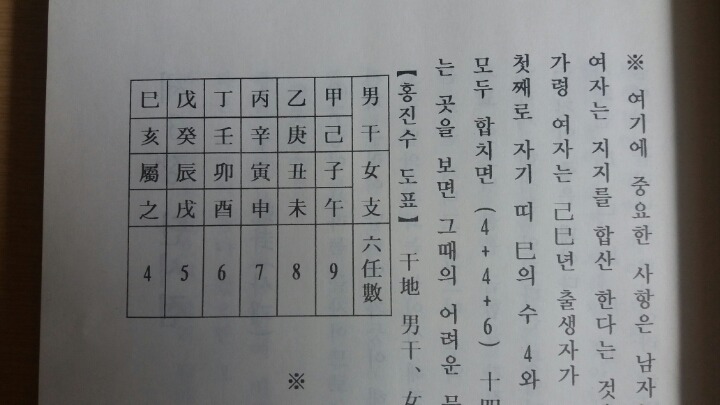 ※ 여기에 중요한 사항은 남자
여자는 지지를 합산 한다는 것
가령 여자는 己巳년 출생자가
첫째로 자기 띠 巳의 수 4와
모두 합치면 (4+4+6) 十四
는 곳을 보면 그때의 어려운
【홍진수 도표】 干地 男干、女
男干女支 六任數
甲己子午 9
乙庚丑未 8
丙辛寅申 7
丁壬卯酉 6
戊癸辰戌 5
巳亥屬之 4
※